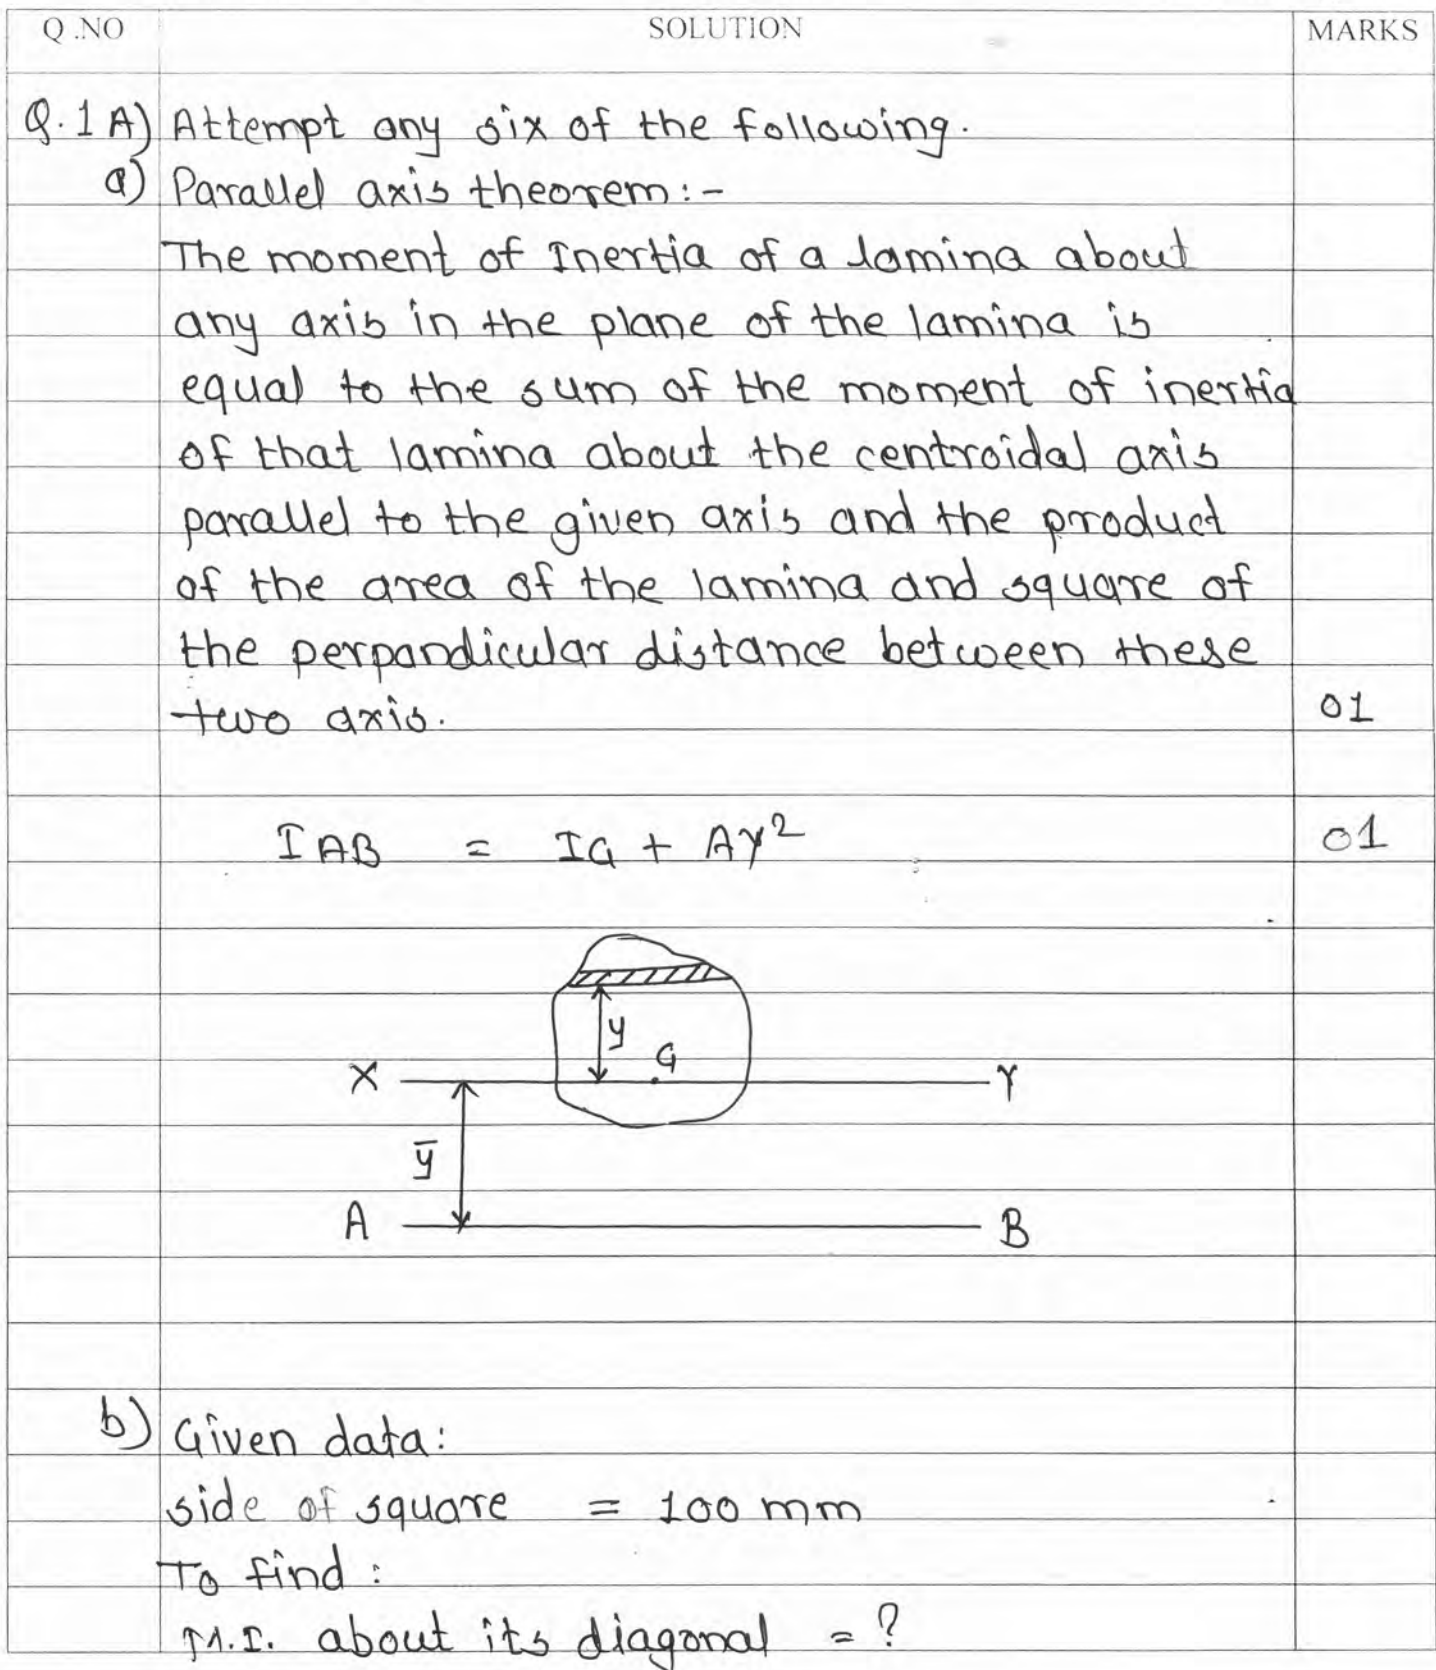 Q.NO SOLUTION MARKS
Q.1 A) Attempt any six of the following.
a) Parallel axis theorem:-
The moment of Inertia of a lamina about
any axis in the plane of the lamina is
equal to the sum of the moment of inertia
of that lamina about the centroidal axis
parallel to the given axis and the product
of the area of the lamina and square of
the perpandicular distance between these
two axis. 01
IAB = IG + AY² 01
y
G
X Y
ȳ
A B
b) Given data:
side of square = 100 mm
To find:
M.I. about its diagonal = ?